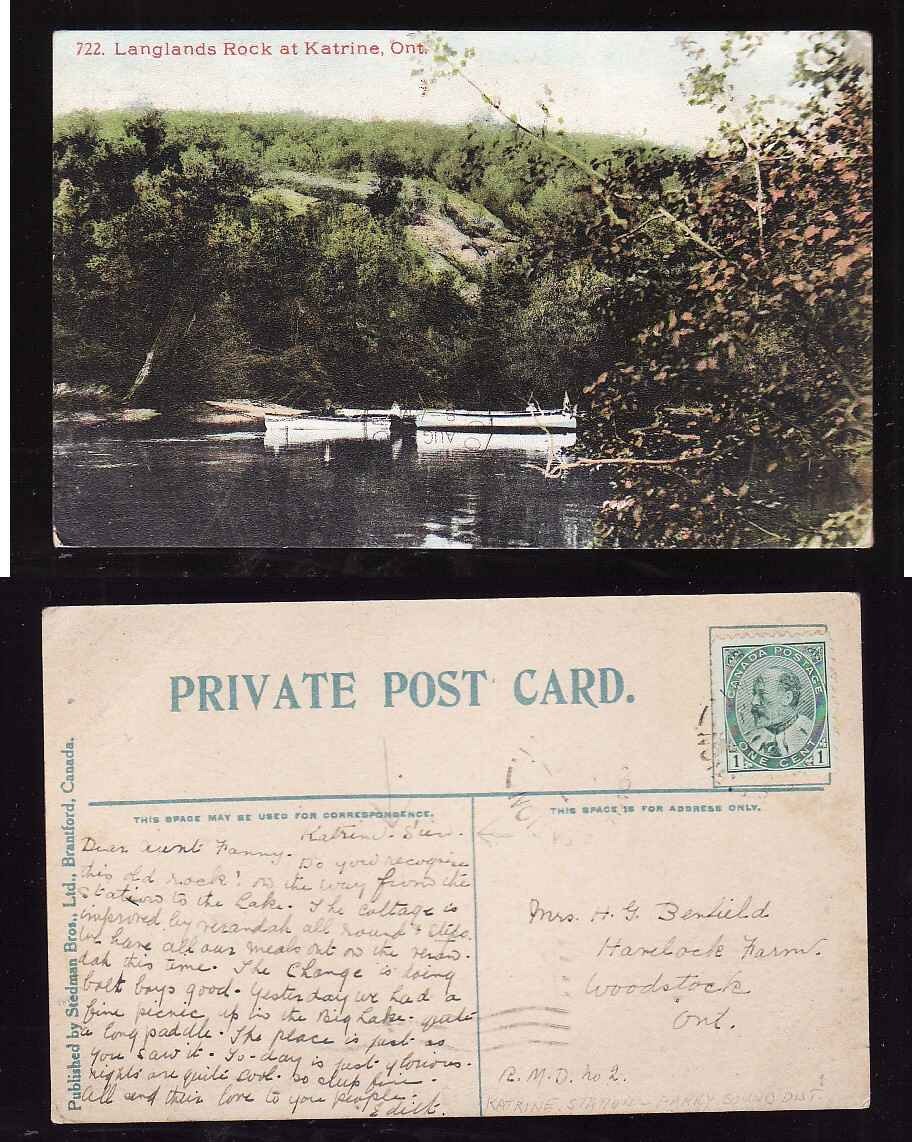 722. Langlands Rock at Katrine, Ont.
AUG
PRIVATE POST CARD.
CANADA POSTAGE
ONE CENT
1 1
THIS SPACE MAY BE USED FOR CORRESPONDENCE.
THIS SPACE IS FOR ADDRESS ONLY.
Published by Stedman Bros., Ltd., Brantford, Canada.
Katrine. Sun.
Dear Aunt Fanny. Do you recognise
this old rock! on the way from the
station to the Lake. The cottage is
improved by verandah all round
We have all our meals out on the veran-
dah this time. The Change is doing
both boys good. Yesterday we had a
fine picnic up in the Big Lake. quite
a long paddle. The place is just as
you saw it. To-day is just glorious.
nights are quite cool. so sleep fine.
All send their love to you people.
Edith.
Mrs. H. G. Benfield
Havelock Farm.
Woodstock
Ont.
R.M.D. No 2.
KATRINE STATION - PARRY SOUND DIST.